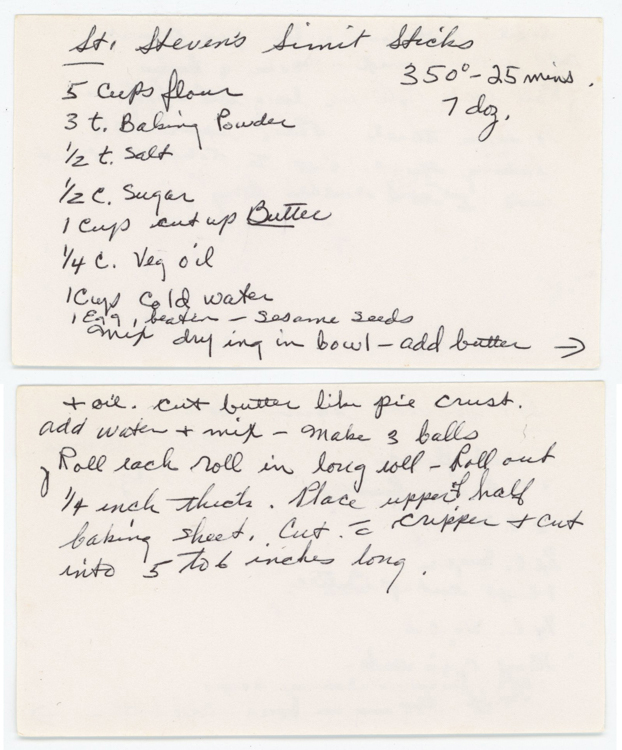 St. Steven's Simit Sticks
350° - 25 mins.
7 doz.
5 Cups flour
3 t. Baking Powder
1/2 t. Salt
1/2 c. Sugar
1 Cup cut up Butter
1/4 C. Veg oil
1 Cup Cold water
1 Egg, beaten - sesame seeds
Mix dry ing in bowl - add butter →
+ oil. cut butter like pie crust.
add water + mix - make 3 balls
Roll each roll in long roll - Roll out
1/4 inch thick. Place upper half
baking sheet. Cut c̄ cripper + cut
into 5 to 6 inches long.